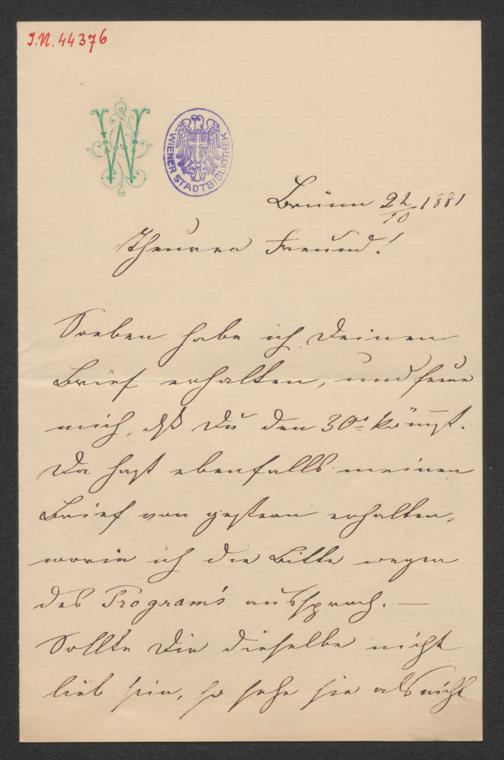 I.N. 44376
W
WIENER STADTBIBLIOTHEK
Brünn 22/10 1881
Theurer Freund!
Soeben habe ich Deinen
Brief erhalten, und freue
mich, dß Du den 30t kömmst.
Du hast ebenfalls meinen
Brief von gestern erhalten,
worin ich die Bitte wegen
des Programs aussprach. —
Sollte Dir dieselbe nicht
lieb sein, so sehe sie als nicht